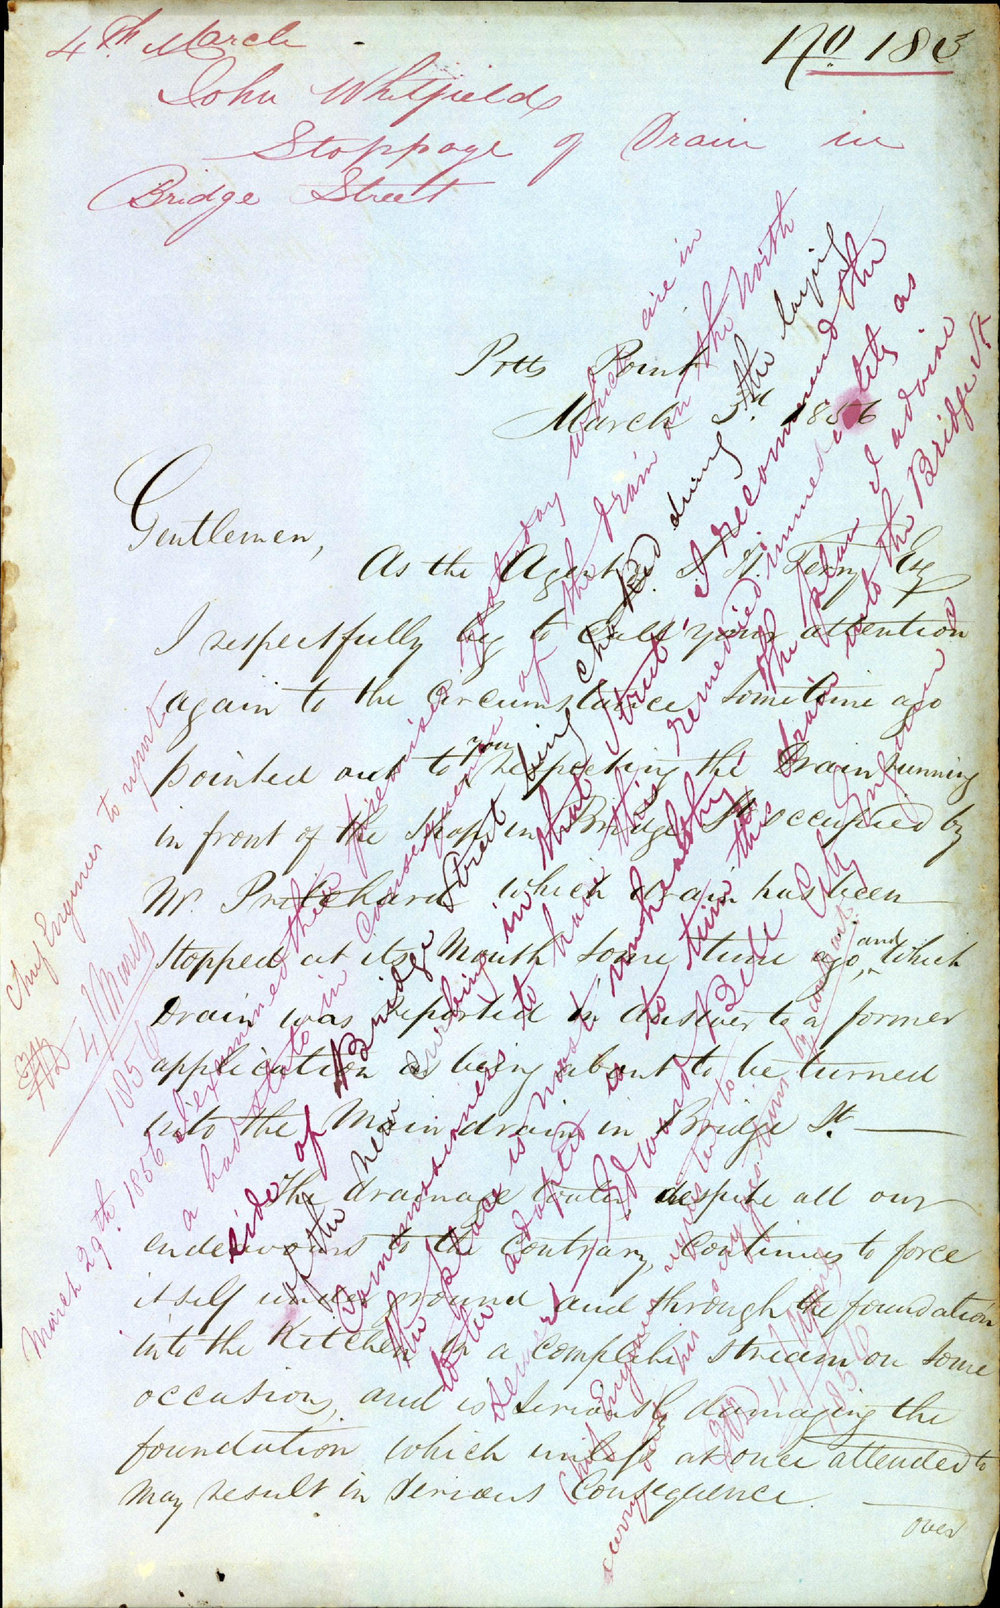 4th March
No 183
John Whitfield
Stoppage of Drain in
Bridge Street
Potts Point
March 3rd 1856
Gentlemen,
As the Agent of T. H. Terry Esq
I respectfully beg to call your attention
again to the circumstance sometime ago
pointed out to you respecting the Drain running
in front of the Shop in Bridge St occupied by
Mr. Pritchard which drain has been
Stopped at its Mouth some time ago, and which
Drain was reported in answer to a former
application as being about to be turned
into the Main drain in Bridge St.
The drainage water despite all our
endeavours to the Contrary, continues to force
itself under ground and through the foundation
into the Kitchen in a complete stream on some
occasions, and is seriously damaging the
foundation which unless at once attended to
may result in serious Consequence.
over
Chief Engineer to report
4/March
1856
March 29th 1856 I examined these premises yesterday which are in
a bad state in consequence of the drain on the North
side of Bridge Street being choked during the laying
of the new Sewer in that Street I recommend the
Commissioners to have this remedied immediately as
the place is most unhealthy the plan I advise
to be adopted is to turn this drain into the Bridge St
Sewer / Edward Bell City Engineer
Chief Engineer
carry out his
4/March
1856